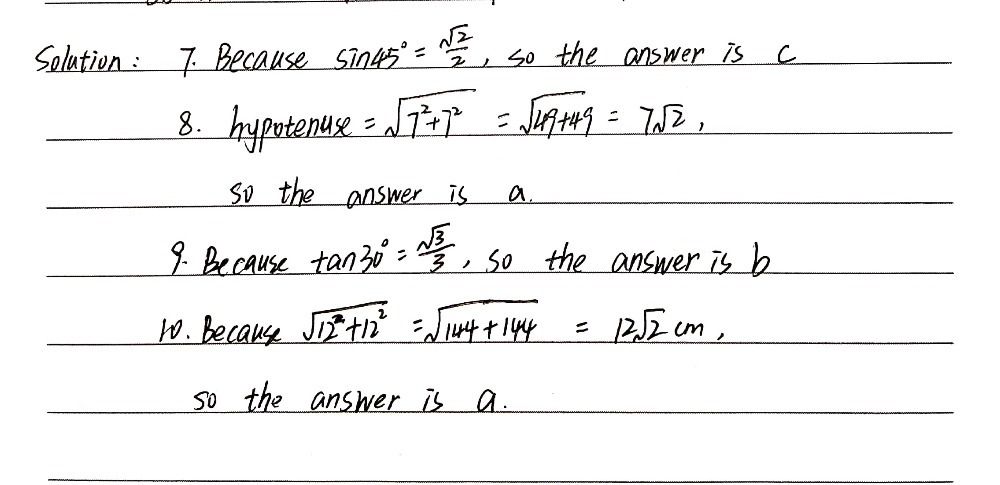 Solution: 7. Because sin45° = √2/2, so the answer is c
8. hypotenuse = √(7²+7²) = √(49+49) = 7√2,
so the answer is a.
9. Because tan30° = √3/3, so the answer is b
10. Because √(12²+12²) = √(144+144) = 12√2 cm,
so the answer is a.